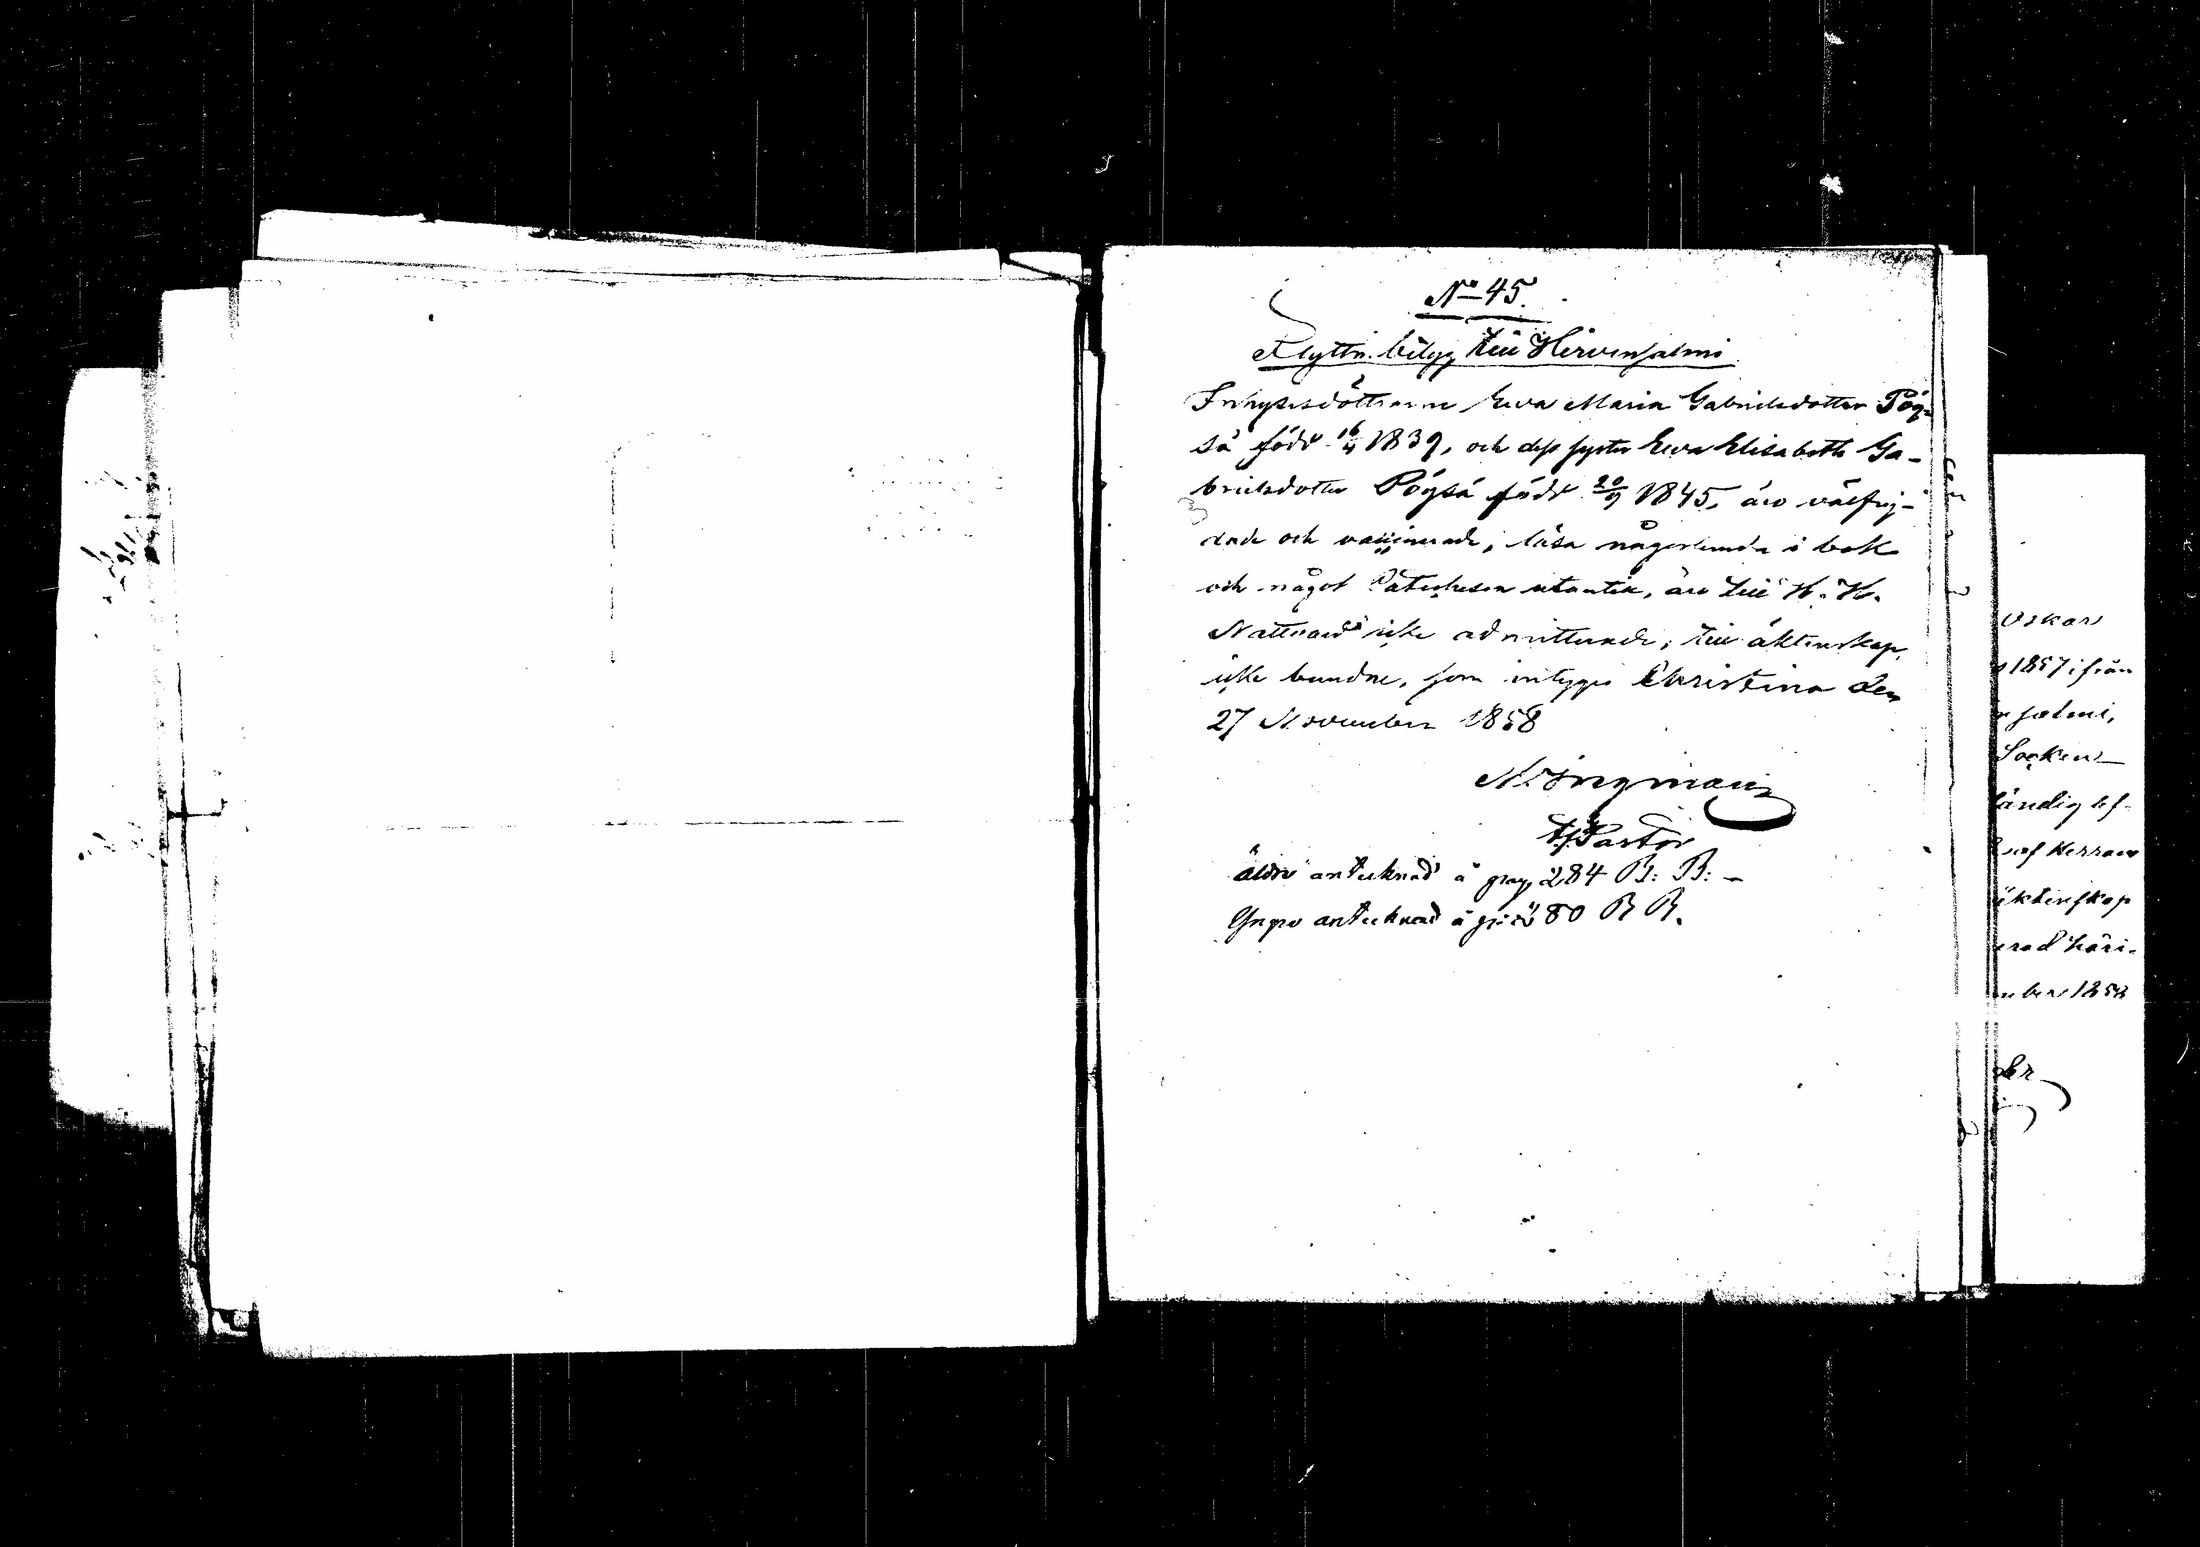 No 45.
Flyttn. betyg till Hirvensalmi
Inhysesdöttrarne Eva Maria Gabrielsdotter Pög-
sä född 16/4 1839, och dess syster Eva Elisabeth Ga-
brielsdotter Pögsä född 20/9 1845, äro välfrej-
dade och vaccinerade, läsa någorlunda i bok
och något Catechesen utantill, äro till H. H.
Nattvard icke admitterade, till äktenskap
icke bundne, som intygas Christina den
27 November 1858
N. Ingman
Pastor
äldre antecknad å pag 284 B: B: -
Yngre antecknad å 80 B B.
Oskar
1857 ifrån
salmi,
Socken
ändig bef-
äktenskap
erad häri-
mber 1858